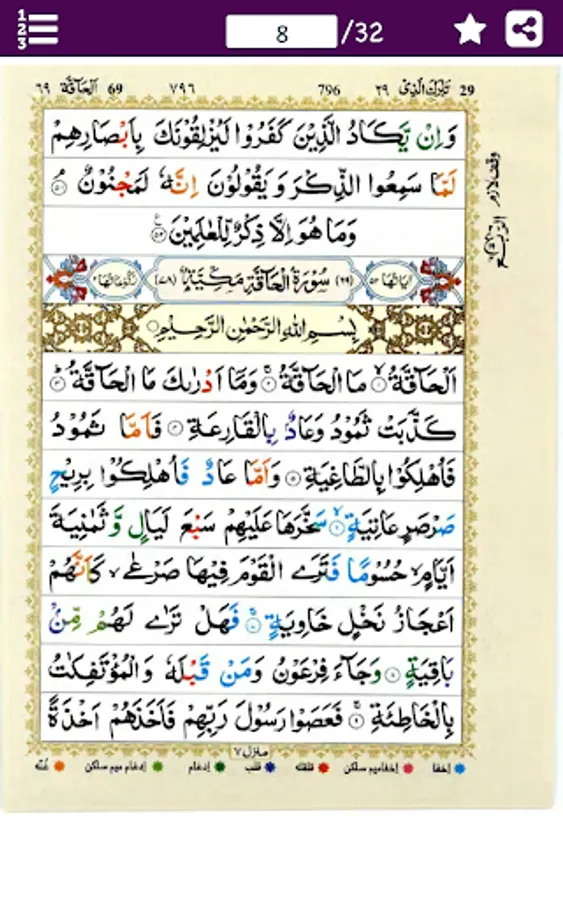 1 2 3
8 /32
29 تَبٰرَكَ الَّذِىْ ٢٩ 796 ٧٩٦ 69 اَلْحَآقَّة ٦٩
وَاِنْ يَّكَادُ الَّذِيْنَ كَفَرُوْا لَيُزْلِقُوْنَكَ بِاَبْصَارِهِمْ
لَمَّا سَمِعُوا الذِّكْرَ وَ يَقُوْلُوْنَ اِنَّهٗ لَمَجْنُوْنٌ ۘ ٥١
وَمَا هُوَ اِلَّا ذِكْرٌ لِّلْعٰلَمِيْنَ ٥٢
وقف لازم
اٰيَاتُهَا ٥٢ (٦٩) سُوْرَةُ الْحَآقَّةِ مَكِّيَّةٌ (٧٨) رُكُوْعَاتُهَا ٢
بِسْمِ اللهِ الرَّحْمٰنِ الرَّحِيْمِ
اَلْحَآقَّةُ ۙ ١ مَا الْحَآقَّةُ ۚ ٢ وَمَاۤ اَدْرٰىكَ مَا الْحَآقَّةُ ؕ ٣
كَذَّبَتْ ثَمُوْدُ وَعَادٌۢ بِالْقَارِعَةِ ٤ فَاَمَّا ثَمُوْدُ
فَاُهْلِكُوْا بِالطَّاغِيَةِ ٥ وَاَمَّا عَادٌ فَاُهْلِكُوْا بِرِيْحٍ
صَرْصَرٍ عَاتِيَةٍ ۙ ٦ سَخَّرَهَا عَلَيْهِمْ سَبْعَ لَيَالٍ وَّثَمٰنِيَةَ
اَيَّامٍ ۙ حُسُوْمًا فَتَرَى الْقَوْمَ فِيْهَا صَرْعٰى ۙ كَاَنَّهُمْ
اَعْجَازُ نَخْلٍ خَاوِيَةٍ ۚ ٧ فَهَلْ تَرٰى لَهُمْ مِّنْۢ
بَاقِيَةٍ ٨ وَجَآءَ فِرْعَوْنُ وَمَنْ قَبْلَهٗ وَالْمُؤْتَفِكٰتُ
بِالْخَاطِئَةِ ۚ ٩ فَعَصَوْا رَسُوْلَ رَبِّهِمْ فَاَخَذَهُمْ اَخْذَةً
منزل ٧
إخفا إخفا ميم ساكن قلقله قلب إدغام إدغام ميم ساكن غنّه